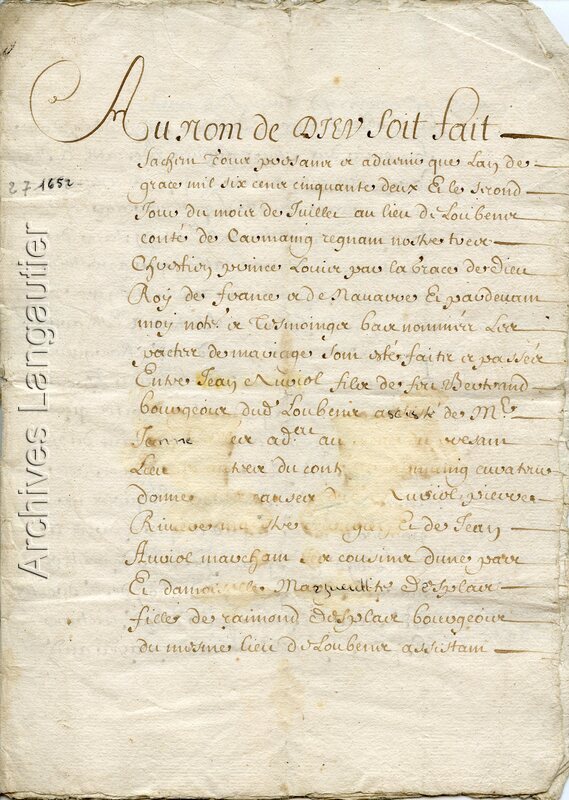 Au nom de DIEV soit fait
Sachent tous presans et advenir que Lan de
grace mil six cens cinquante deux Et le segond
Jour du mois de Juillet au lieu de Loubens
2 7 1652
conté de Carmaing regnant nostre tres
Chrestien prince Louis par la Grace de Dieu
Roy de france et de Navarre Et pardevant
moy notre et Tesmoingz bas nommés Les
pactes de mariage sont esté faitz et passés
Entre Jean Auriol filz de feu Bertrand
bourgeois dud Loubens assisté de Mr
Janne ad au
Lieu du cont
donne Auriol pierre
Riviere Et de Jean
Auriol marchant ses cousins dune part
Et damoiselle Margueritte Desplas
fille de raimond Desplas bourgeois
du mesme lieu de Loubens assistant
Archives Langautier